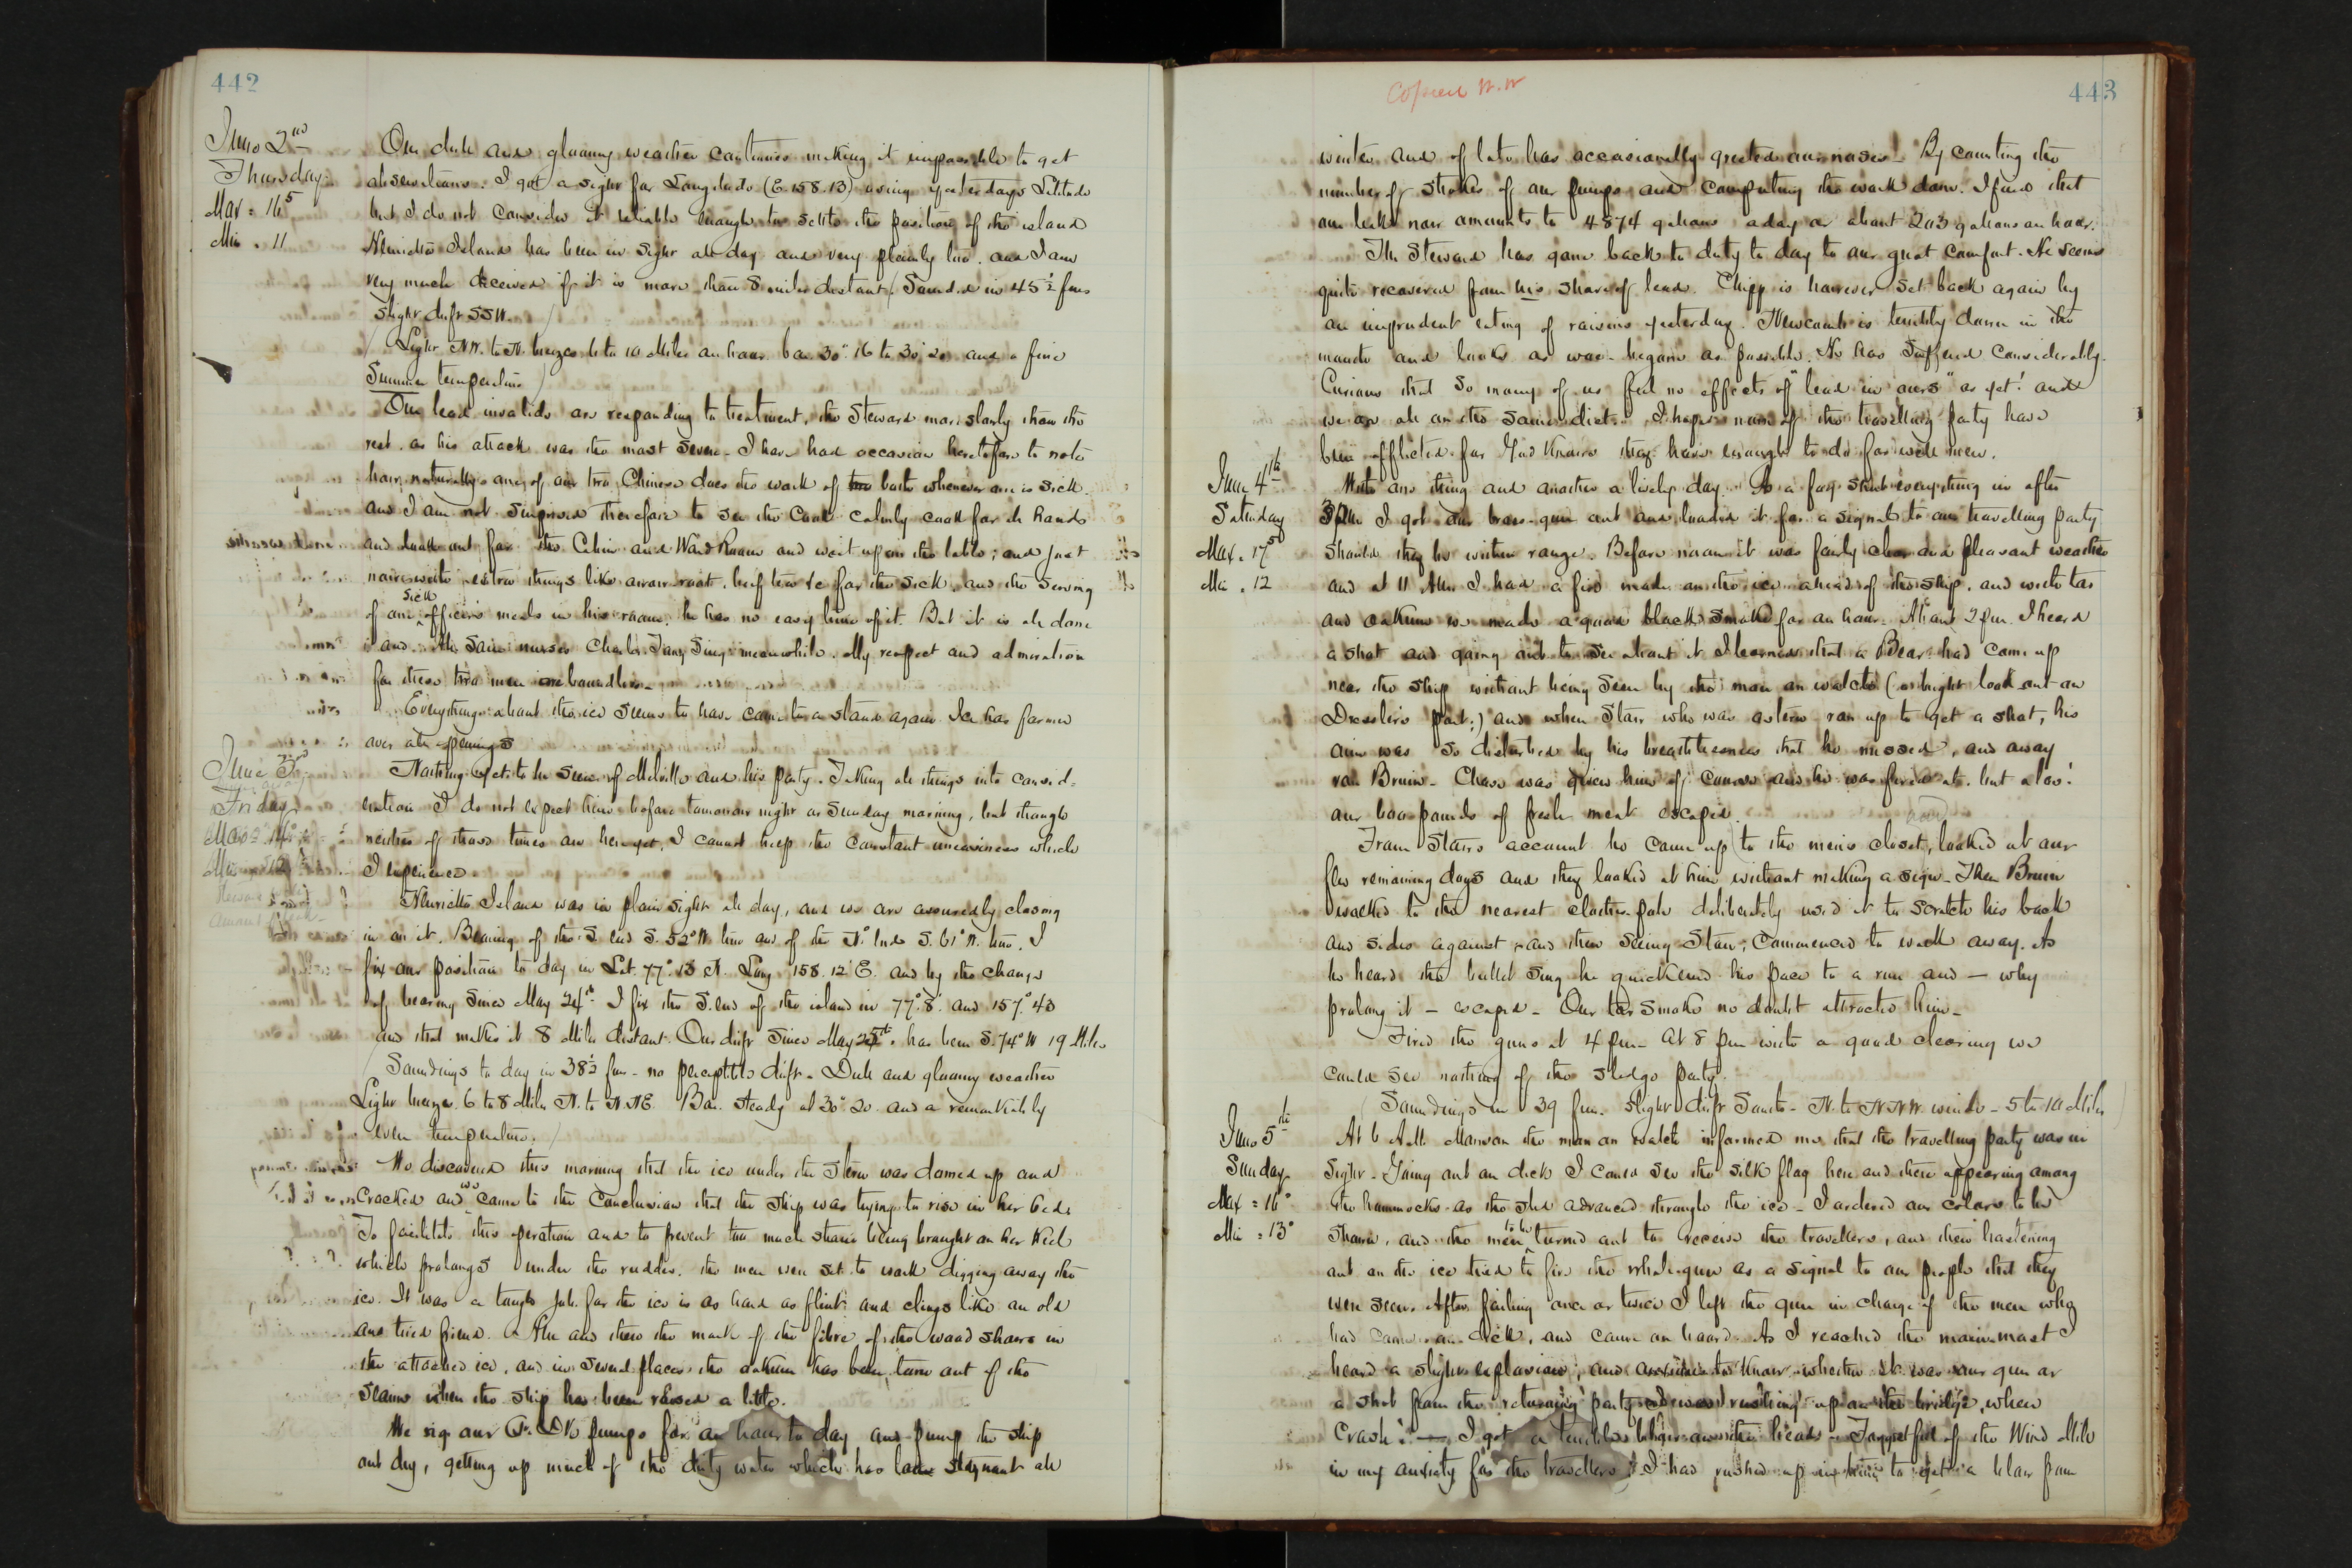 442
June 2nd
Thursday
Max = 16.5
Min = 11
Our dull and gloomy weather continues making it impossible to get
observations. I got a sight for Longitude (E. 158.13) using yesterdays Latitude
but I do not consider it reliable enough to settle the position of the island
Henrietta Island has been in sight all day and very plainly too. and I am
very much deceived if it is more than 8 miles distant. Sounded in 45½ fms
slight drift SSW.
Light NW. to N. breezes 6 to 10 Miles an hour bar 30".16 to 30".20 and a fine
Summer temperature
Our lead invalids are responding to treatment, the Steward more slowly than the
rest. as his attack was the most severe. I have had occasion heretofore to note
how naturally one of our two Chinese does the work of both whenever one is sick.
and I am not surprised therefore to see the Cook calmly cook for all hands
and look out for the Cabin and Ward Room and wait upon the table; and just
now with extra things like arrow-root, beef tea &c for the sick, and the serving
of one sick officer's meals in his room, he has no easy time of it. But it is all done
and Ah Sam nurses Charles Tong Sing meanwhile. My respect and admiration
for these two men are boundless.
Everything about the ice seems to have come to a stand again. Ice has formed
over all openings
June 3rd
Friday
Max = 14°
Min =
Nothing yet to be seen of Melville and his party. Taking all things into consid=
eration I do not expect him before tomorrow night or Sunday morning, but though
neither of those times are here yet, I cannot keep the constant uneasiness which
I experience.
Henrietta Island was in plain sight all day, and we are assuredly closing
in on it. Bearing of the S. end S. 52° W. true and of the N. end S. 61° W. true. I
fix our position to day in Lat. 77°.13 N. Long 158.12 E. and by the change
of bearing since May 24th I fix the S. end of the island in 77°.8' and 157°.43
and that makes it 8 Miles distant. Our drift since May 25th has been S. 74° W 19 Miles
Soundings to day in 38½ fms - no perceptible drift. Dull and gloomy weather
Light breezes 6 to 8 Miles N. to N.NE. Bar. steady at 30".20 and a remarkably
even temperature.
We discovered this morning that the ice under the Stern was domed up and
cracked and we came to the conclusion that the ship was trying to rise in her bed.
To facilitate this operation and to prevent too much strain being brought on her Keel
which prolongs under the rudder, the men were set to work digging away the
ice. It was a tough job. for the ice is as hard as flint and clings like an old
and tried friend. Now and then the mark of the fibre of the wood shows in
the attached ice, and in several places the oakum has been torn out of the
seams when the ship has been raised a little.
We rig our Q. Dk pumps for an hour to day and pump the ship
out dry, getting up much of the dirty water which has lain stagnant all
443
Copied W.W
winter and of late has occasionally greeted our noses. By counting the
number of strokes of our pumps and computing the work done. I find that
our leak now amounts to 4874 gallons a day or about 203 gallons an hour.
The Steward has gone back to duty to day to our great comfort. He seems
quite recovered from his share of lead. Chipp is however set back again by
an imprudent eating of raisins yesterday. Newcomb is terribly down in the
mouth and looks as woe-begone as possible. He has suffered considerably.
Curious that so many of us feel no effects of "lead in ours" as yet! and
we are all on the same diet. I hope none of the travelling party have
been afflicted for God knows they have enough to do for well men.
June 4th
Saturday
Max. 17.5
Min. 12
With one thing and another a lively day. As a fog shut everything in after
I got our brass-gun out and loaded it for a signal to our travelling party
should they be within range. Before noon it was fairly clear and pleasant weather
and at 11 AM. I had a fire made on the ice ahead of the ship, and with tar
and oakum we made a good black smoke for an hour. About 2 pm. I heard
a shot and going out to see about it I learned that a Bear had come up
near the ship without being seen by the man on watch (a bright look out on
Dressler's part!) and when Starr who was astern ran up to get a shot, his
aim was so disturbed by his breathlessness that he missed, and away
ran Bruin. Chase was given him of course and he was fired at. but alas!
our 600 pounds of fresh meat escaped.
From Starrs account he came up to the mens closet, looked at our
few remaining dogs and they looked at him without making a sign. Then Bruin
walked to the nearest clothes-pole deliberately used it to scratch his back
and sides against, and then seeing Starr, commenced to walk away. As
he heard the bullet sing he quickened his pace to a run and — why
prolong it — escaped. Our tar smoke no doubt attracted him.
Fired the guns at 4 pm. At 8 pm with a good clearing we
could see nothing of the sledge party.
Soundings in 39 fms. slight drift South. N. to N.NW. winds. 5 to 10 Miles
June 5th
Sunday
Max = 16°
Min = 13°
At 6 AM. Manson the man on watch informed me that the travelling party was in
sight. Going out on deck I could see the silk flag here and there appearing among
the hummocks as the sled advanced through the ice. I ordered our colors to be
shown, and the men to be turned out to receive the travellers, and then hastening
out on the ice tried to fire the whale-gun as a signal to our people that they
were seen. After failing once or twice I left the gun in charge of the men who
had come on deck, and came on board. As I reached the main-mast I
heard a slight explosion, and anxious to know whether it was our gun or
a shot from the returning party was rushing up on the bridge, when
Crash! — I got a terrible blow on the head. Forgetful of the Wind Mill
in my anxiety for the travellers, I had rushed up in time to get a blow from